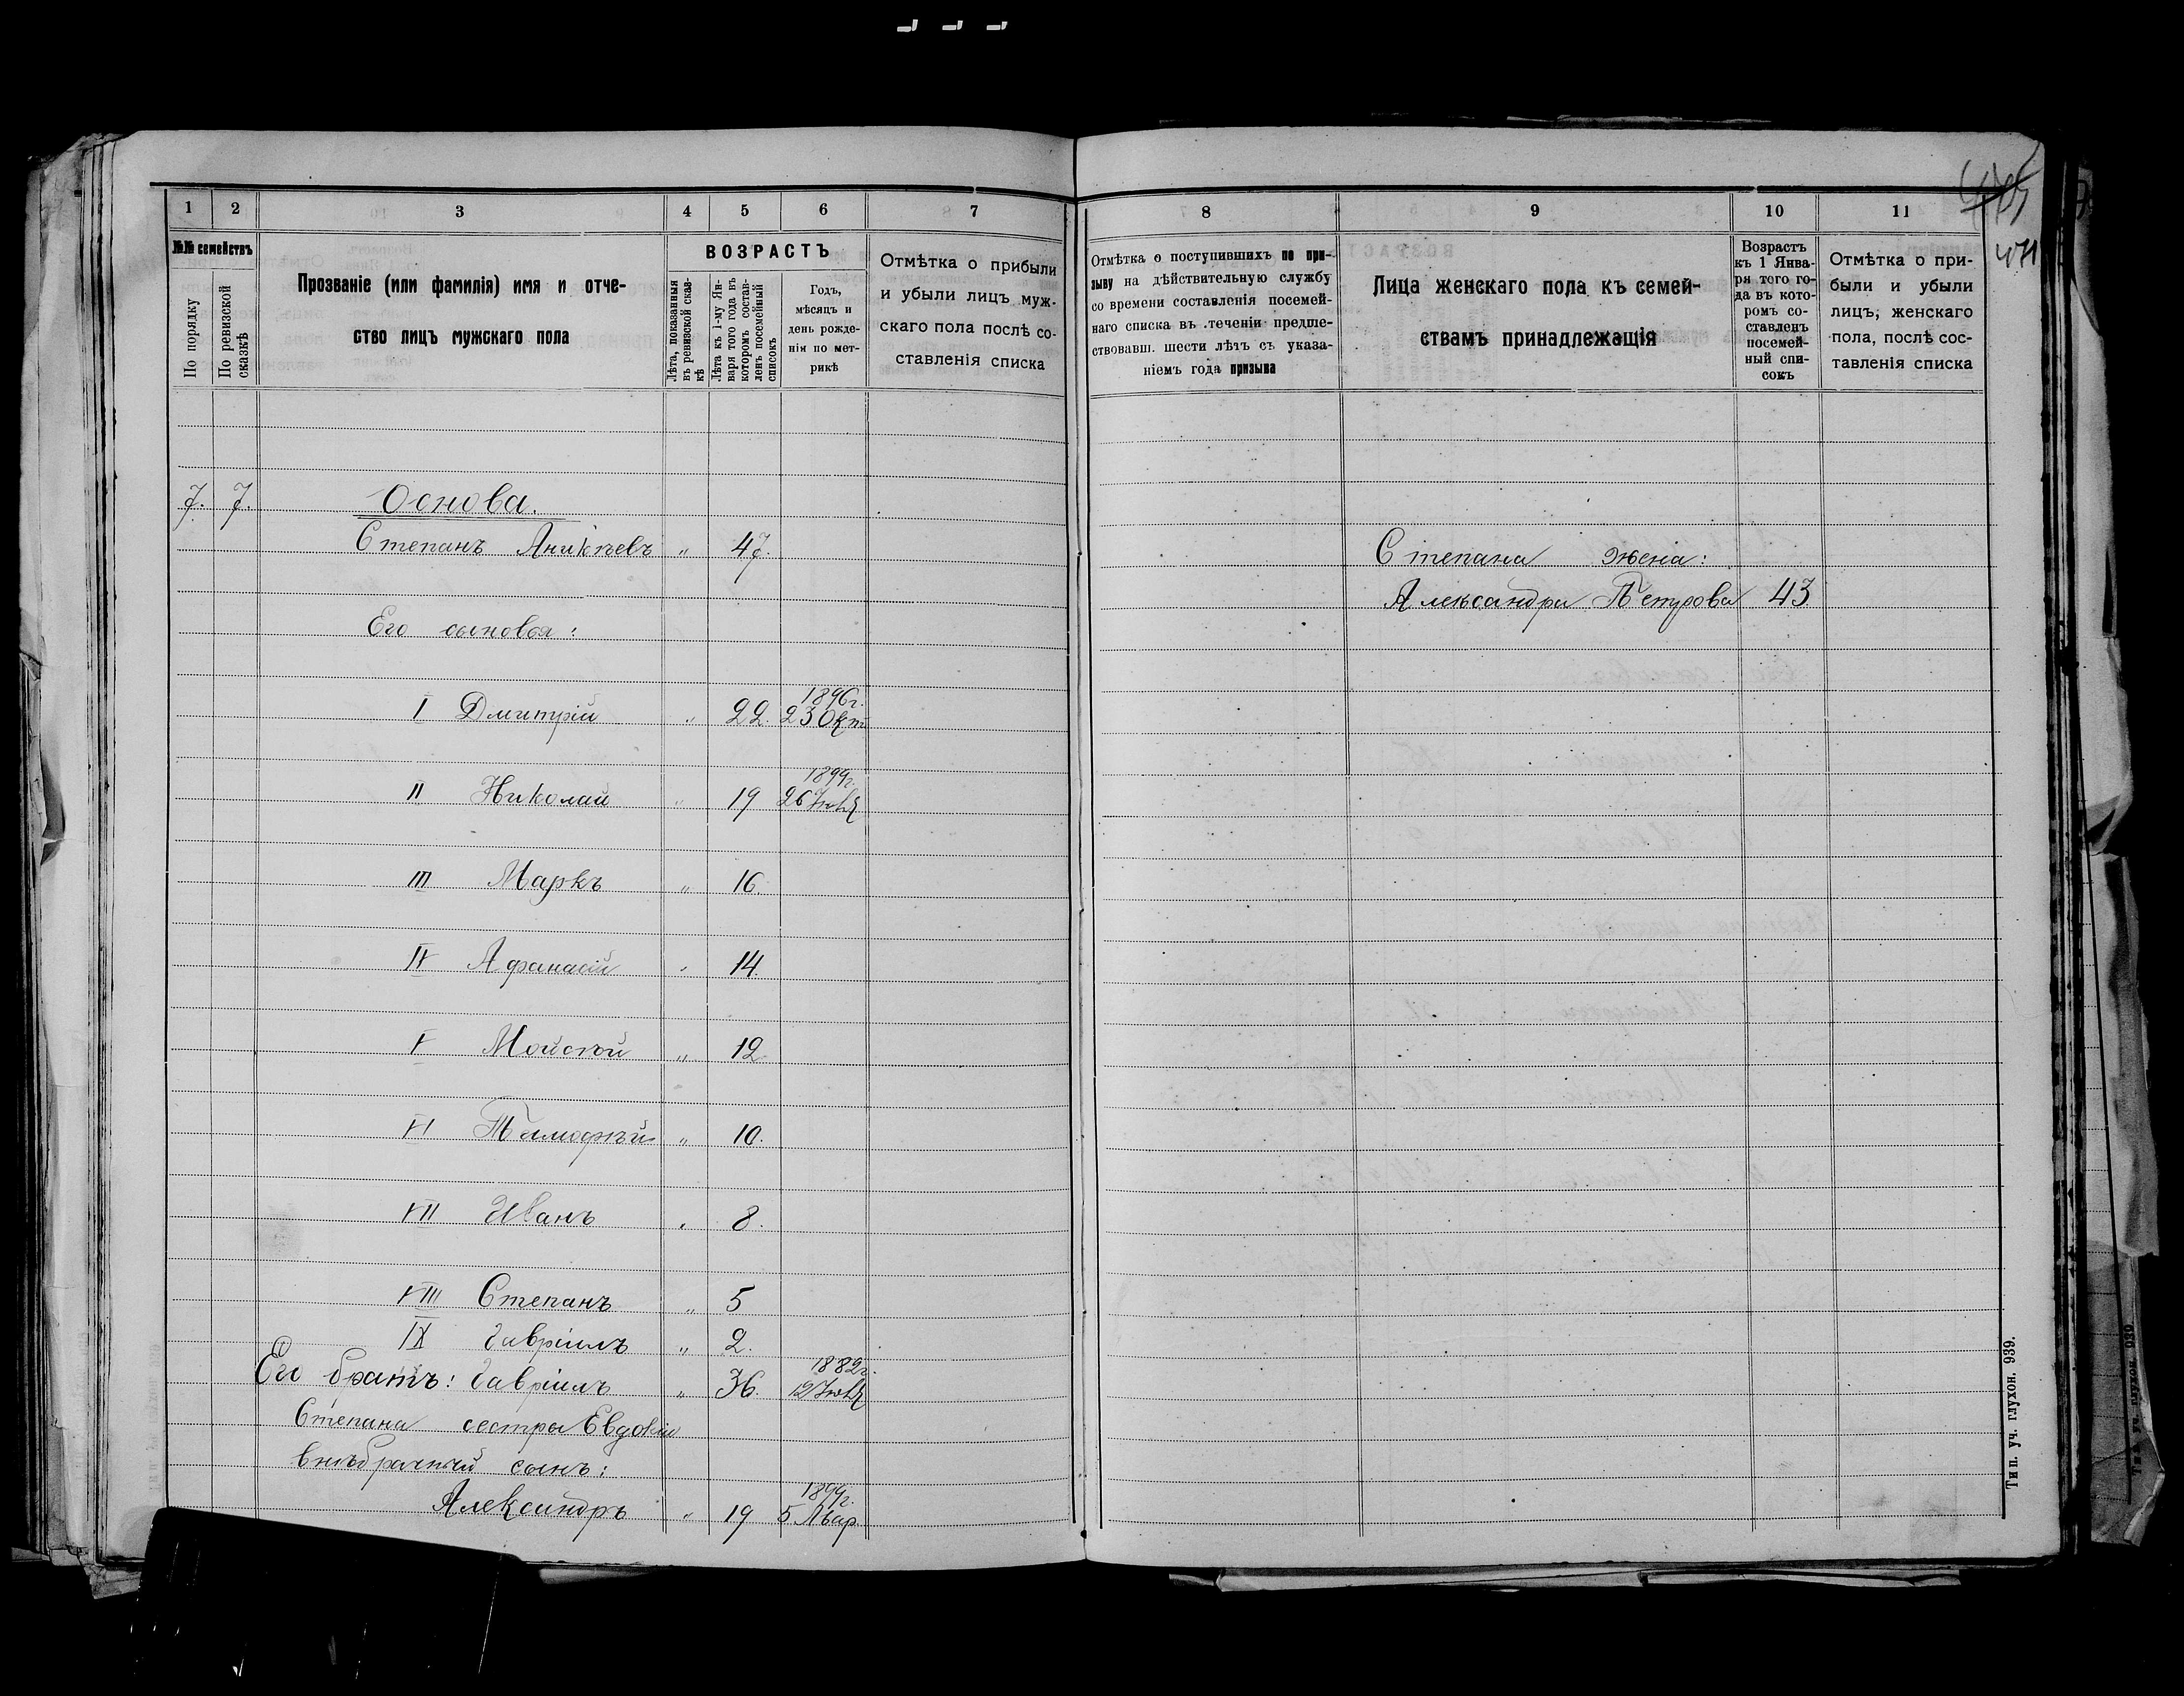 1 2 3 4 5 6 7
№№ семействъ
По порядку
По ревизской сказкѣ
Прозваніе (или фамилія) имя и отче-
ство лицъ мужскаго пола
ВОЗРАСТЪ
Лѣта, показанныя
въ ревизской сказ-
кѣ
Лѣта къ 1-му Ян-
варя того года къ
которомъ состав-
ленъ посемейный
списокъ
Годъ,
мѣсяцъ и
день рожде-
нія по мет-
рикѣ
Отмѣтка о прибыли
и убыли лицъ муж-
скаго пола послѣ со-
ставленія списка
7. 7. Основа.
Степанъ Аникѣевъ „ 47.
Его сыновья:
1896г.
I Дмитрій „ 22. 23 Окт
1899г.
II Николай „ 19 26
III Маркъ „ 16.
IV Афанасій „ 14.
V Мойсѣй „ 12
VI Тимофѣй „ 10.
VII Иванъ „ 8.
VIII Степанъ „ 5
IX Гавріилъ „ 2.
1882г.
Его братъ: Гавріилъ „ 36. 12
Степана сестры Евдокіи
внѣбрачный сынъ:
1899г.
Александръ „ 19 5
8 9 10 11
471
Отмѣтка о поступившихъ по при-
зыву на дѣйствительную службу
со времени составленія посемей-
наго списка въ теченіи предше-
ствовавш. шести лѣтъ съ указа-
ніемъ года призыва
Лица женскаго пола къ семей-
ствамъ принадлежащія
Возрастъ
къ 1 Янва-
ря того го-
да въ кото-
ромъ со-
ставленъ
посемей-
ный спи-
сокъ
Отмѣтка о при-
были и убыли
лицъ, женскаго
пола, послѣ сос-
тавленія списка
Степана жена:
Александра Петрова 43.
Тип. уч. глухон. 939.